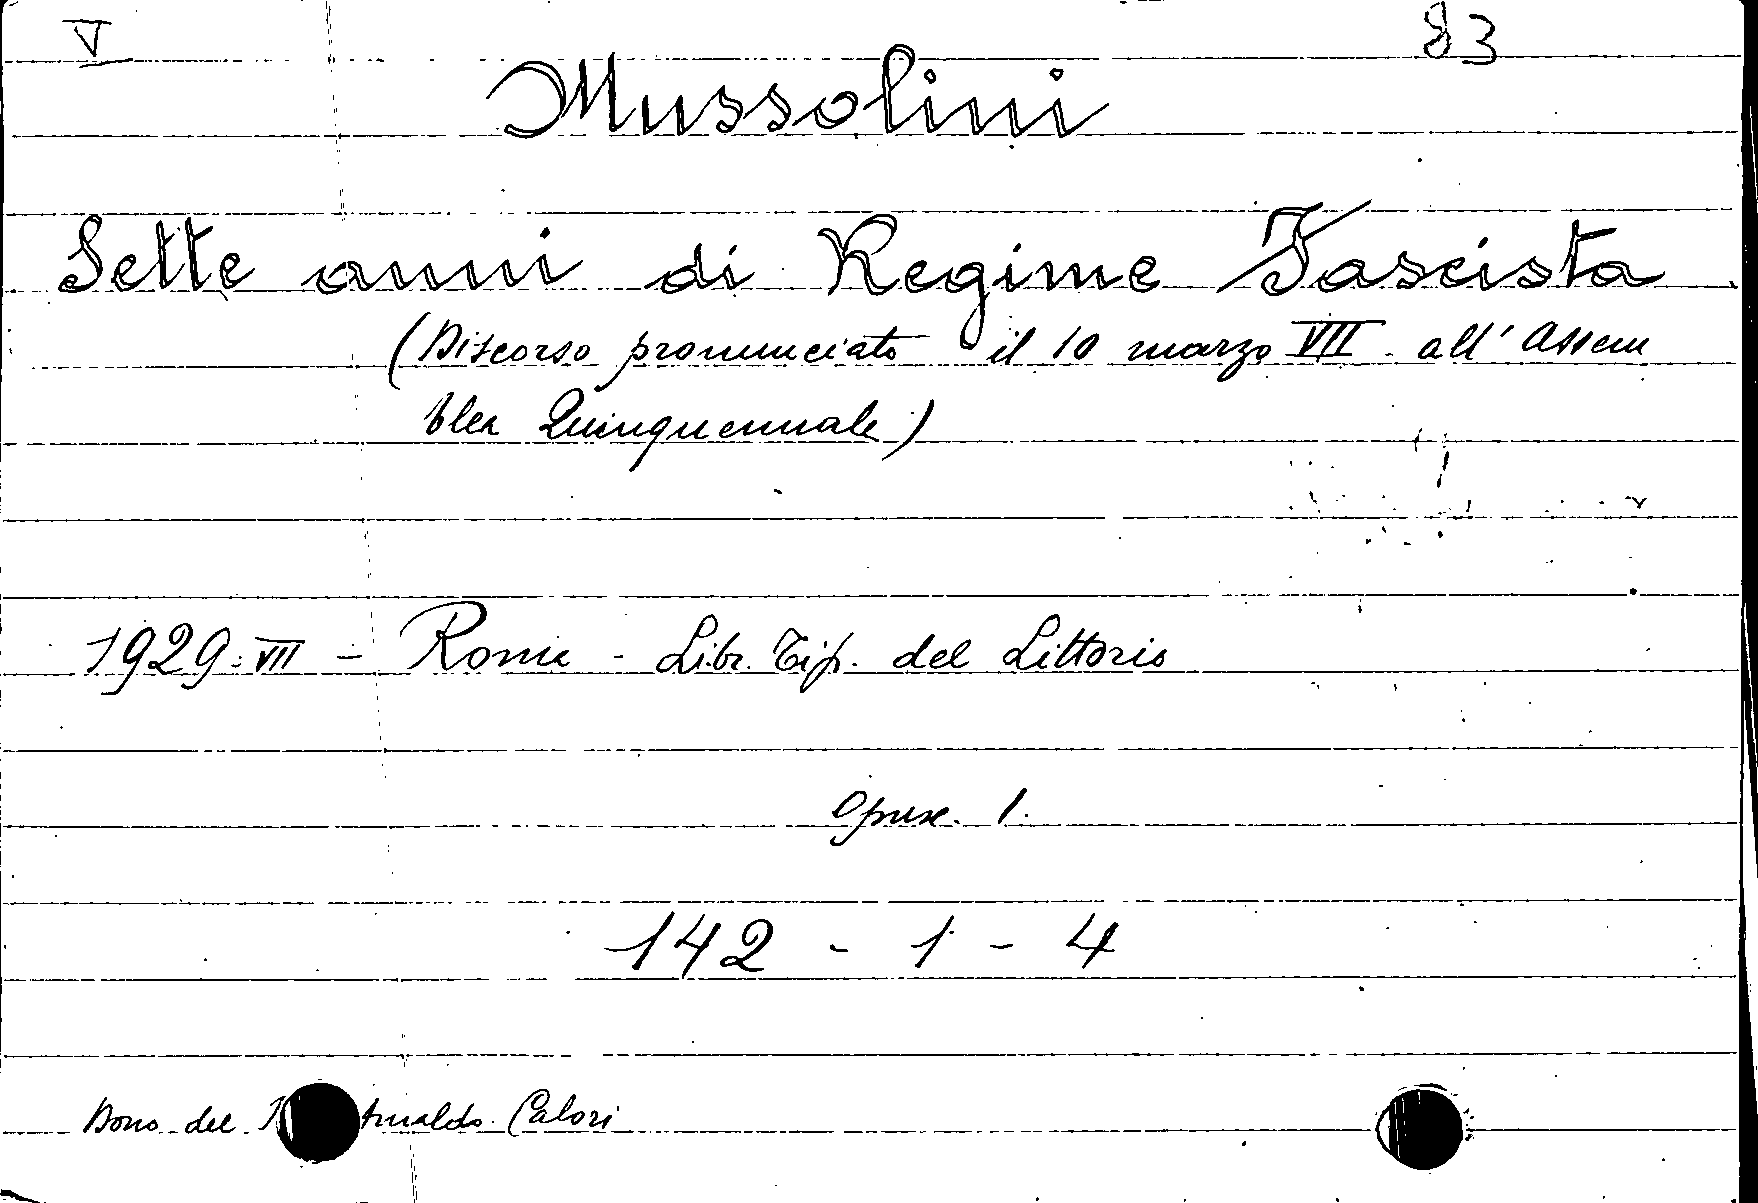 V 83
Mussolini
Sette anni di Regime Fascista
(Discorso pronunciato il 10 marzo VII all' Assem
blea Quinquennale)
1929-VII - Roma - Libr. Tip. del Littorio
Opusc. 1.
142 - 1 - 4
Dono del Arnaldo Calori